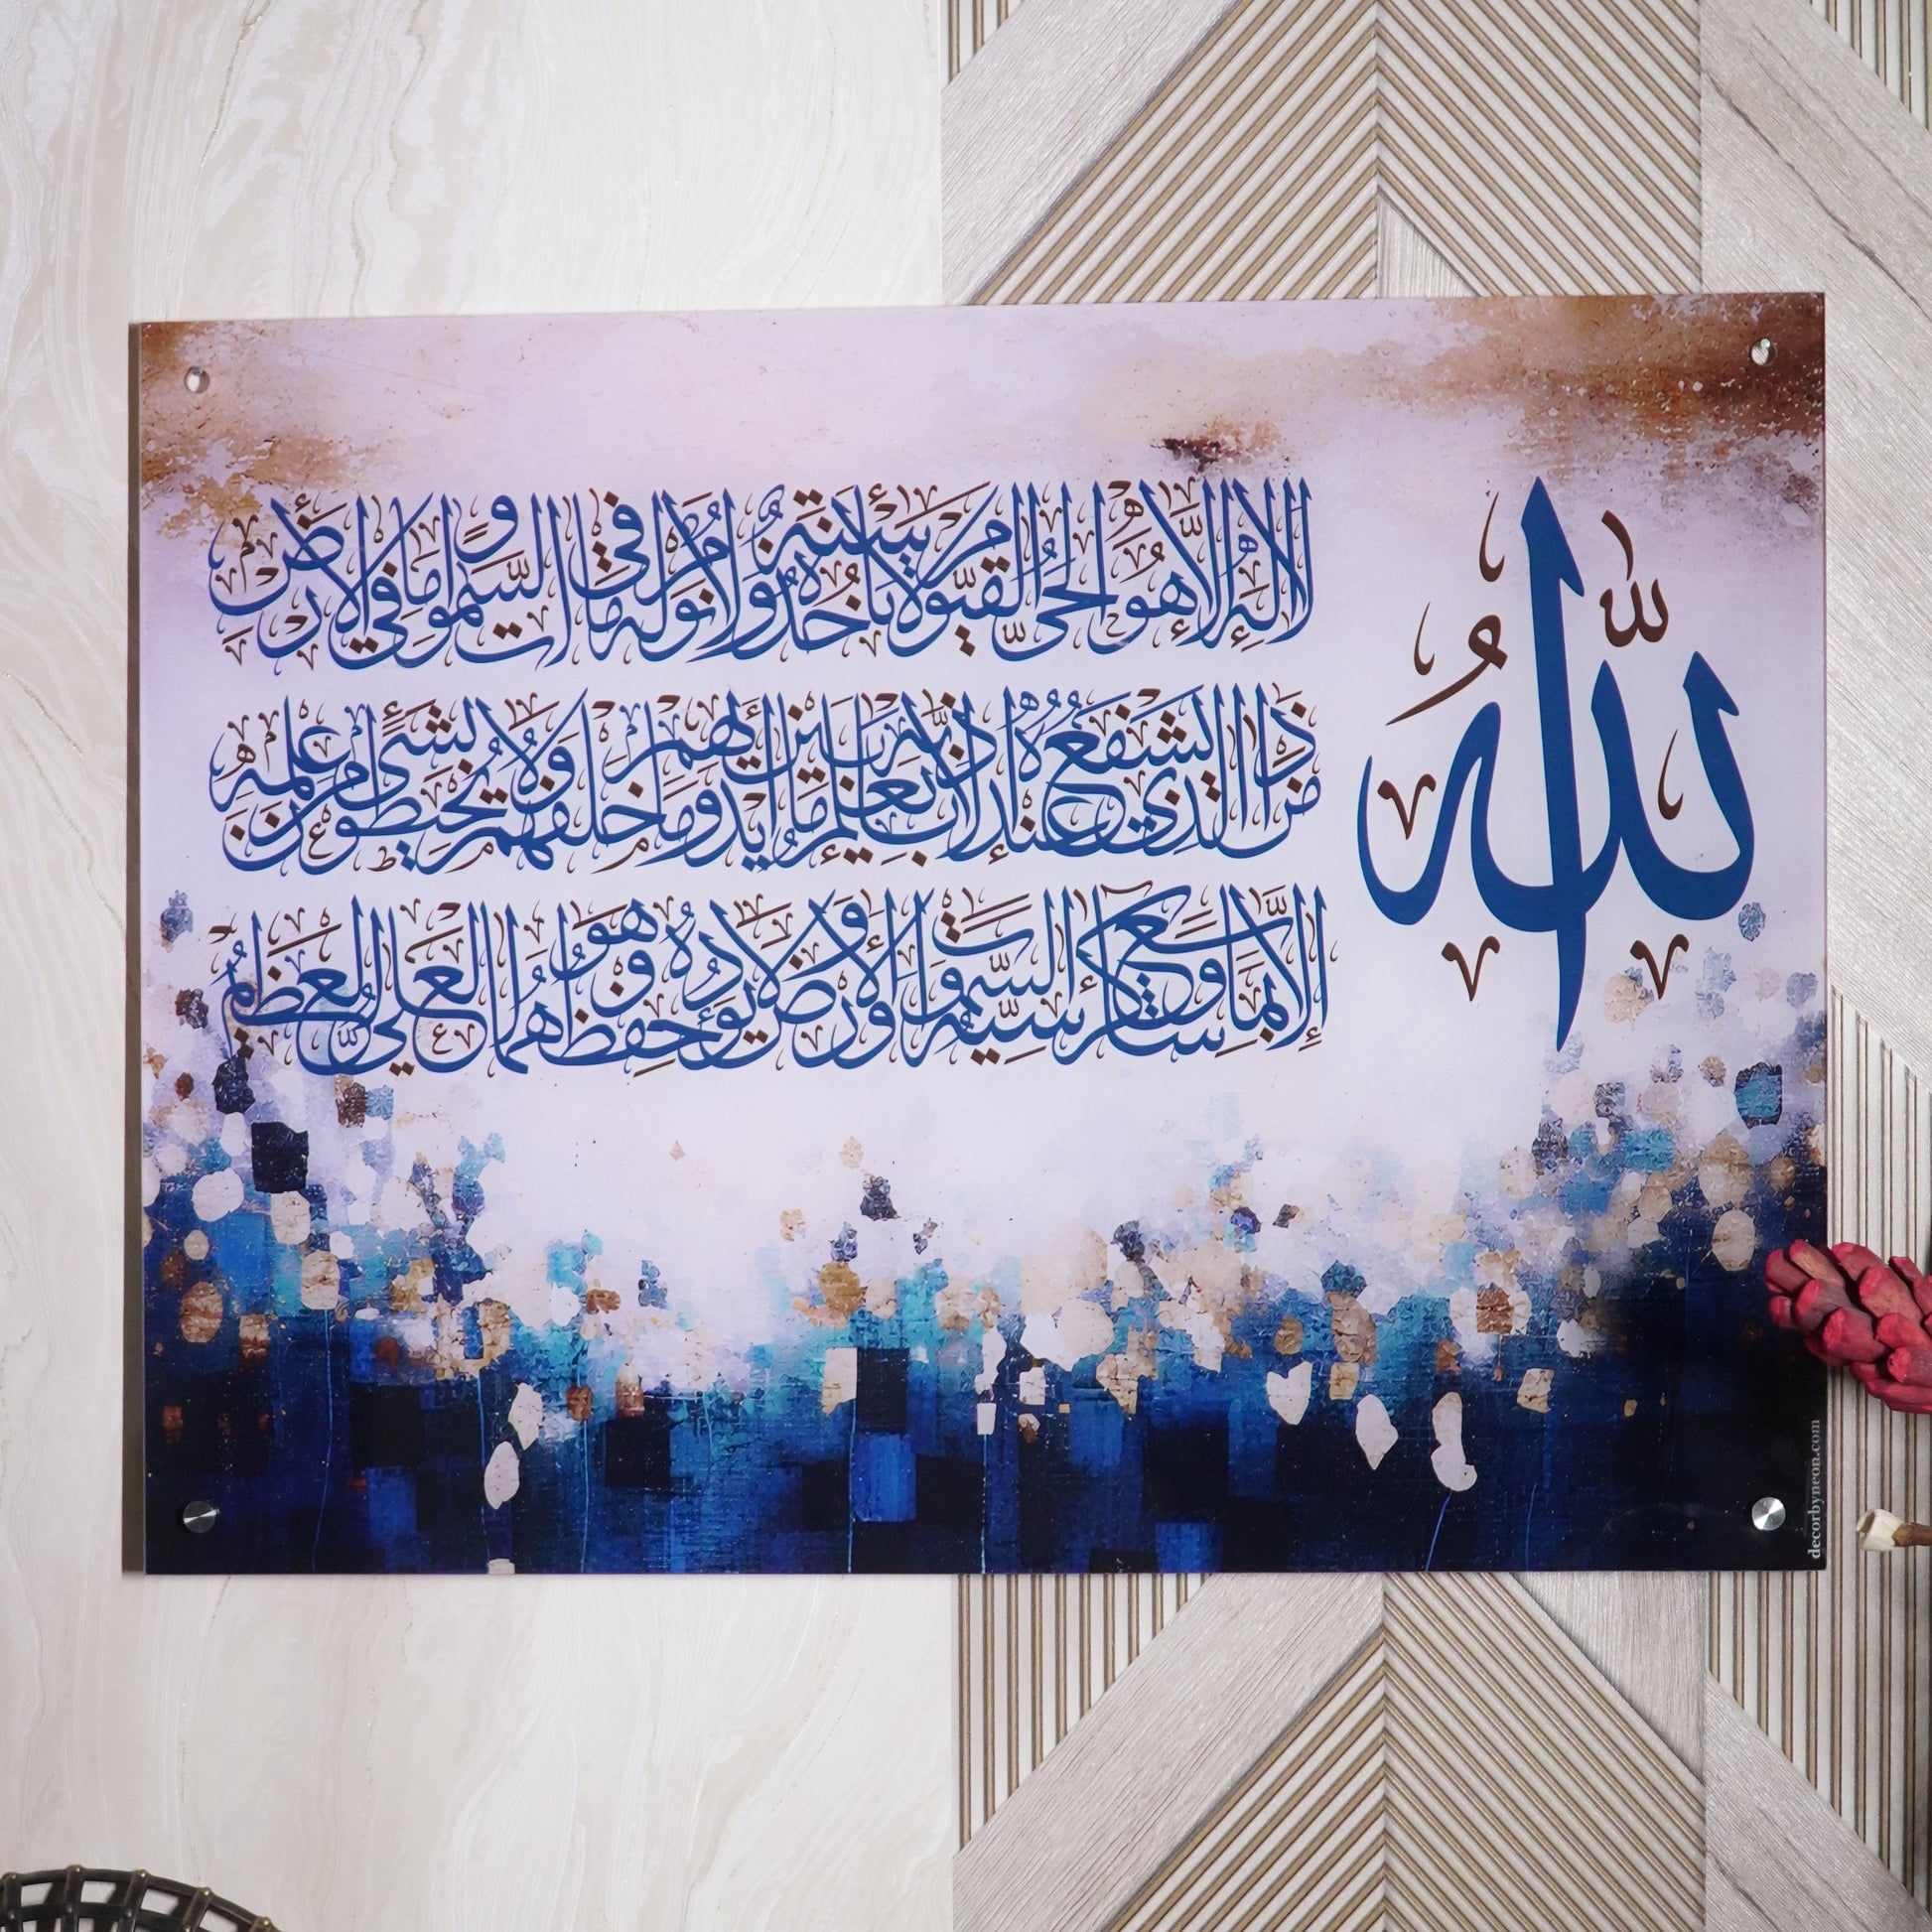 اللهُ
لَا إِلٰهَ إِلَّا هُوَ الْحَيُّ الْقَيُّومُ لَا تَأْخُذُهُ سِنَةٌ وَلَا نَوْمٌ لَهُ مَا فِي السَّمٰوَاتِ وَمَا فِي الْأَرْضِ
مَنْ ذَا الَّذِي يَشْفَعُ عِنْدَهُ إِلَّا بِإِذْنِهِ يَعْلَمُ مَا بَيْنَ أَيْدِيهِمْ وَمَا خَلْفَهُمْ وَلَا يُحِيطُونَ بِشَيْءٍ مِنْ عِلْمِهِ
إِلَّا بِمَا شَاءَ وَسِعَ كُرْسِيُّهُ السَّمٰوَاتِ وَالْأَرْضَ وَلَا يَئُودُهُ حِفْظُهُمَا وَهُوَ الْعَلِيُّ الْعَظِيمُ
decorbyneon.com